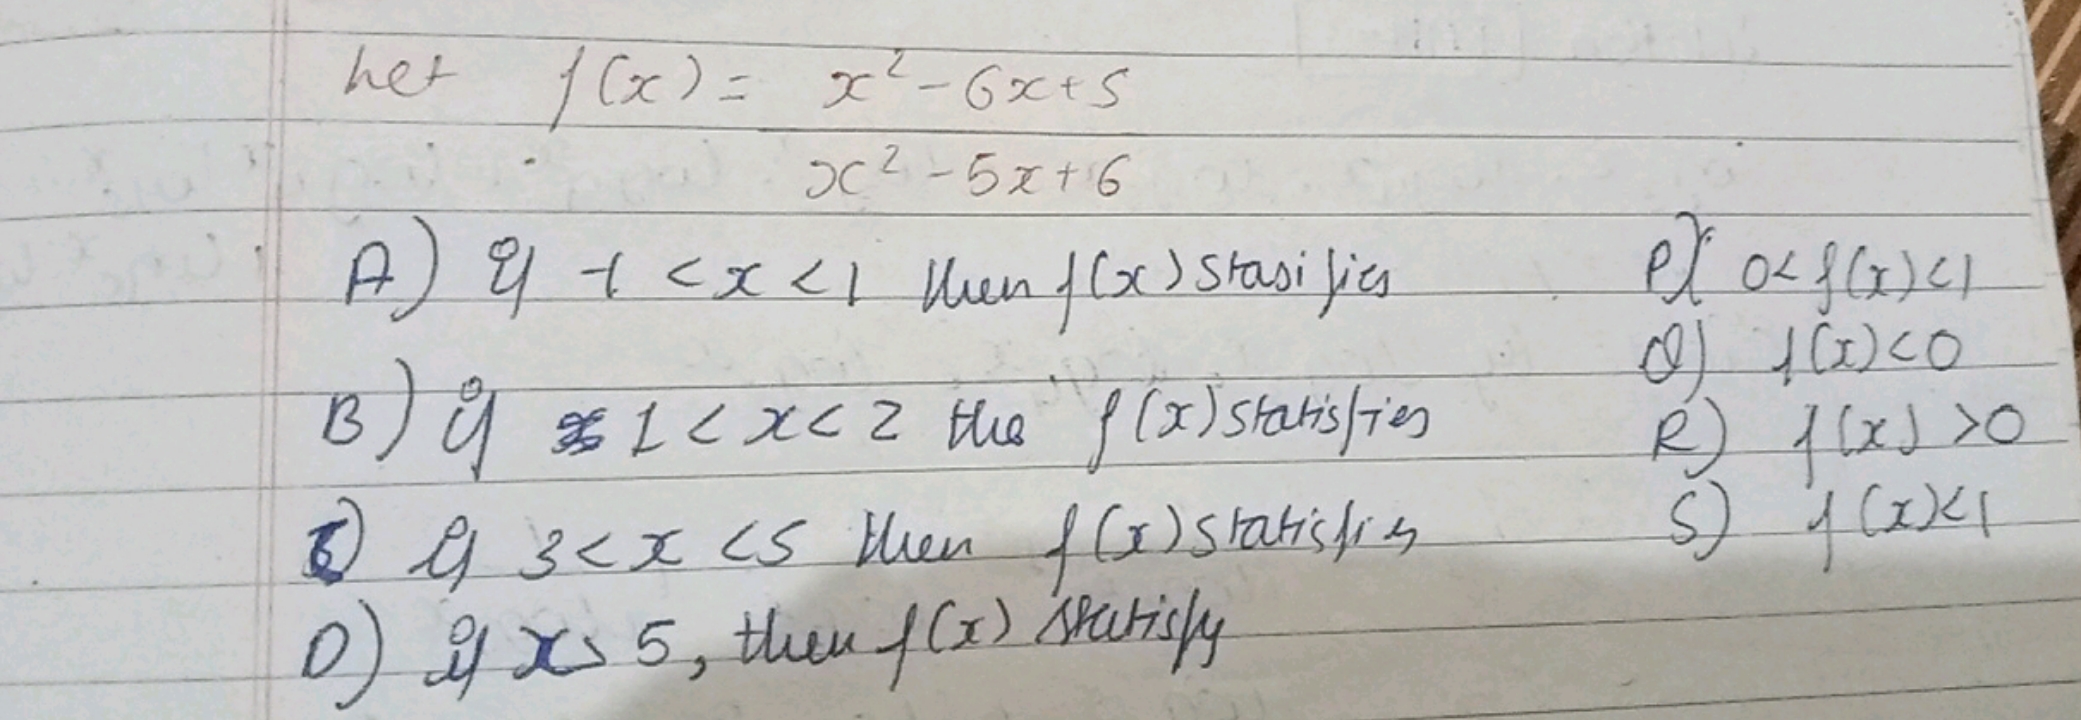 Let f(x) = x² - 6x + 5
x² - 5x + 6
A) If -1 < x < 1 then f(x) stasifies P) 0 < f(x) < 1
Q) f(x) < 0
B) If 1 < x < 2 the f(x) statisfies R) f(x) > 0
C) If 3 < x < 5 then f(x) statisfies S) f(x) < 1
D) If x > 5, then f(x) statisfy